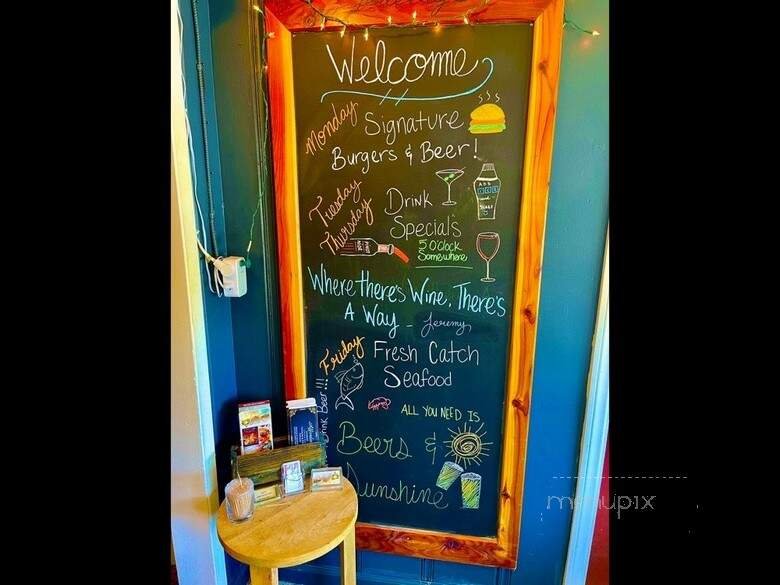 Welcome
Monday
Signature
Burgers & Beer!
Tuesday
Thursday
Drink
Specials
5 O'Clock
Somewhere
Where there's Wine, There's
A Way - Jeremy
Friday
Fresh Catch
Seafood
Drink Beer!!!
ALL YOU NEED IS
Beers &
Sunshine
menupix